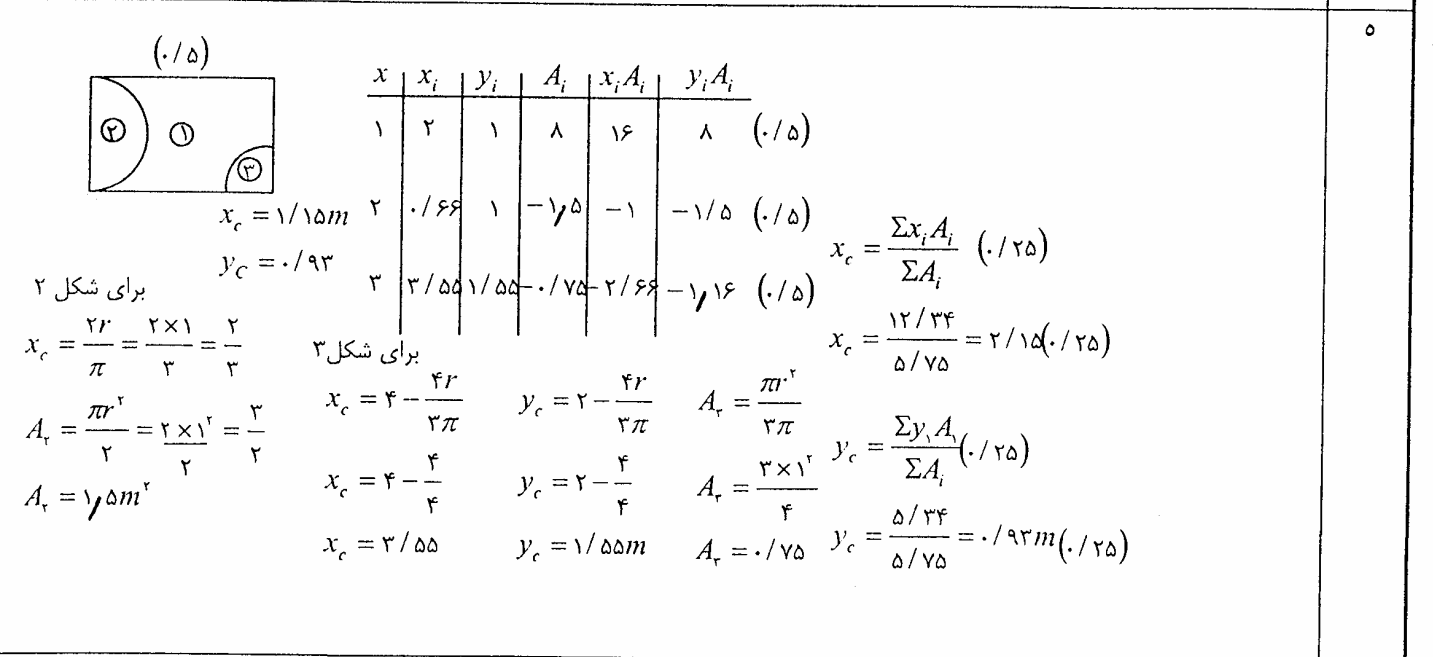 ۵
(۰/۵)
۲ ۱ ۳
x | xᵢ | yᵢ | Aᵢ | xᵢAᵢ | yᵢAᵢ
۱ | ۲ | ۱ | ۸ | ۱۶ | ۸ (۰/۵)
۲ | ۰/۶۶ | ۱ | −۱٫۵ | −۱ | −۱/۵ (۰/۵)
۳ | ۳/۵۵ | ۱/۵۵ | −۰/۷۵ | −۲/۶۶ | −۱٫۱۶ (۰/۵)
x_c = ۱/۱۵m
y_C = ۰/۹۳
برای شکل ۲
x_c = ۲r/π = (۲×۱)/۳ = ۲/۳
A₂ = πr²/۲ = (۲×۱²)/۲ = ۳/۲
A₂ = ۱٫۵m²
برای شکل۳
x_c = ۴ − ۴r/۳π    y_c = ۲ − ۴r/۳π    A₃ = πr²/۳π
x_c = ۴ − ۴/۴    y_c = ۲ − ۴/۴    A₃ = (۳×۱²)/۴
x_c = ۳/۵۵    y_c = ۱/۵۵m    A₃ = ۰/۷۵
x_c = ΣxᵢAᵢ / ΣAᵢ (۰/۲۵)
x_c = (۱۲/۳۴) / (۵/۷۵) = ۲/۱۵(۰/۲۵)
y_c = Σy₁A₁ / ΣAᵢ (۰/۲۵)
y_c = (۵/۳۴) / (۵/۷۵) = ۰/۹۳m(۰/۲۵)